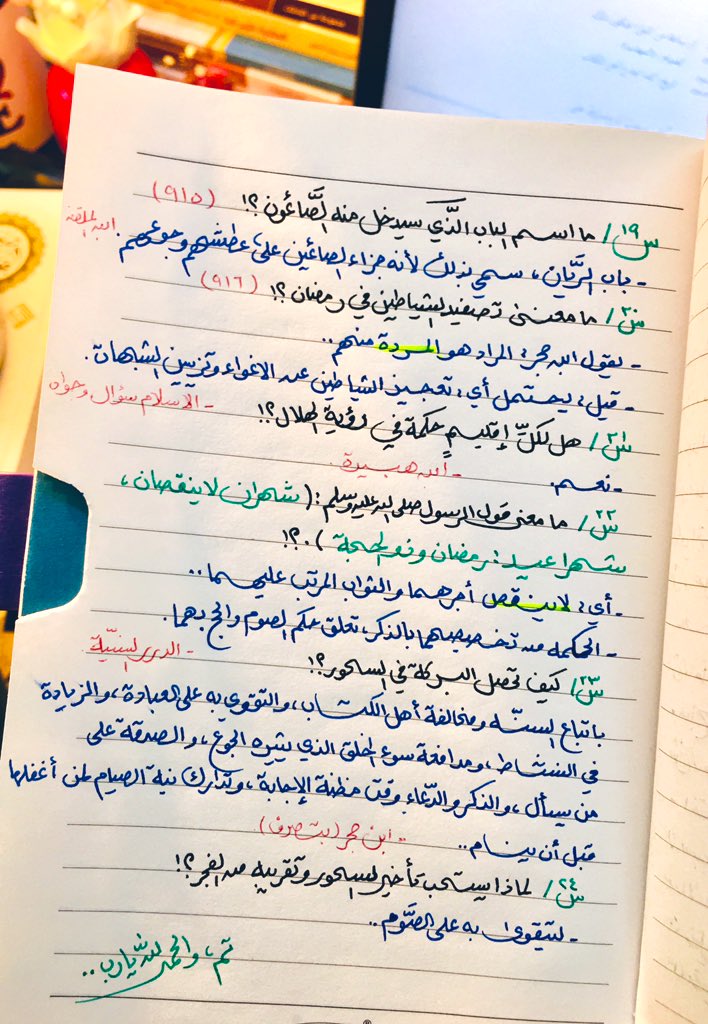 س١٩/ ما اسم الباب الَّذي سيدخل منه الصَّائمون ؟! (٩١٥)
- باب الريَّان، سمي بذلك لأنه جزاء الصائمين على عطشهم وجوعهم. ابن الملقن
س٢٠/ ما معنى تصفيد الشياطين في رمضان ؟! (٩١٦)
- يقول ابن حجر: المراد هو المردة منهم..
- قيل: يحتمل أي: تعجيز الشياطين عن الاغواء وتزيين الشبهات.
- الاسلام سؤال وجواب
س٢١/ هل لكلِّ إقليمٍ حكمة في رؤية الهلال ؟!
- نعم. - ابن هبيرة.
س٢٢/ ما معنى قول الرسول صلى الله عليه وسلم: (شهران لا ينقصان،
شهرا عيد: رمضان وذو الحجة). ؟!
- أي: لا ينقص أجرهما والثواب المرتب عليهما..
- الحكمة من تخصيصهما بالذكر، تعلق حكم الصوم والحج بهما.
- الدرر السنيّة.
س٢٣/ كيف تحصل البركة في السحور ؟!
باتباع السنّة ومخالفة أهل الكتاب، والتقوي به على العبادة، والزيادة
في النشاط، ومدافعة سوء الخلق الذي يثيره الجوع، والصدقة على
من يسأل، والذكر والدّعاء وقت مظنة الإجابة، وتدارك نية الصيام لمن أغفلها
قبل أن ينام.. .. ابن حجر (بتصرف).
س٢٤/ لماذا يستحب تأخير السحور وتقريبه من الفجر ؟!
- ليتقوى به على الصَّوم..
تم، والحمدلله يارب..